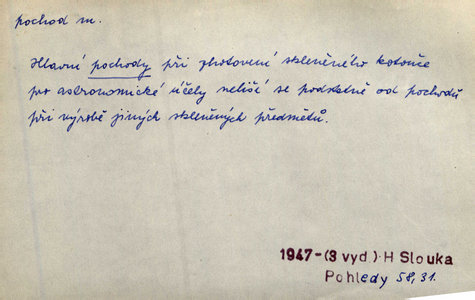 pochod m.
Hlavní pochody při zhotovení skleněného kotouče
pro astronomické účely neliší se podstatně od pochodů
při výrobě jiných skleněných předmětů.
1947-(3 vyd.) · H Slouka
Pohledy 58,31.